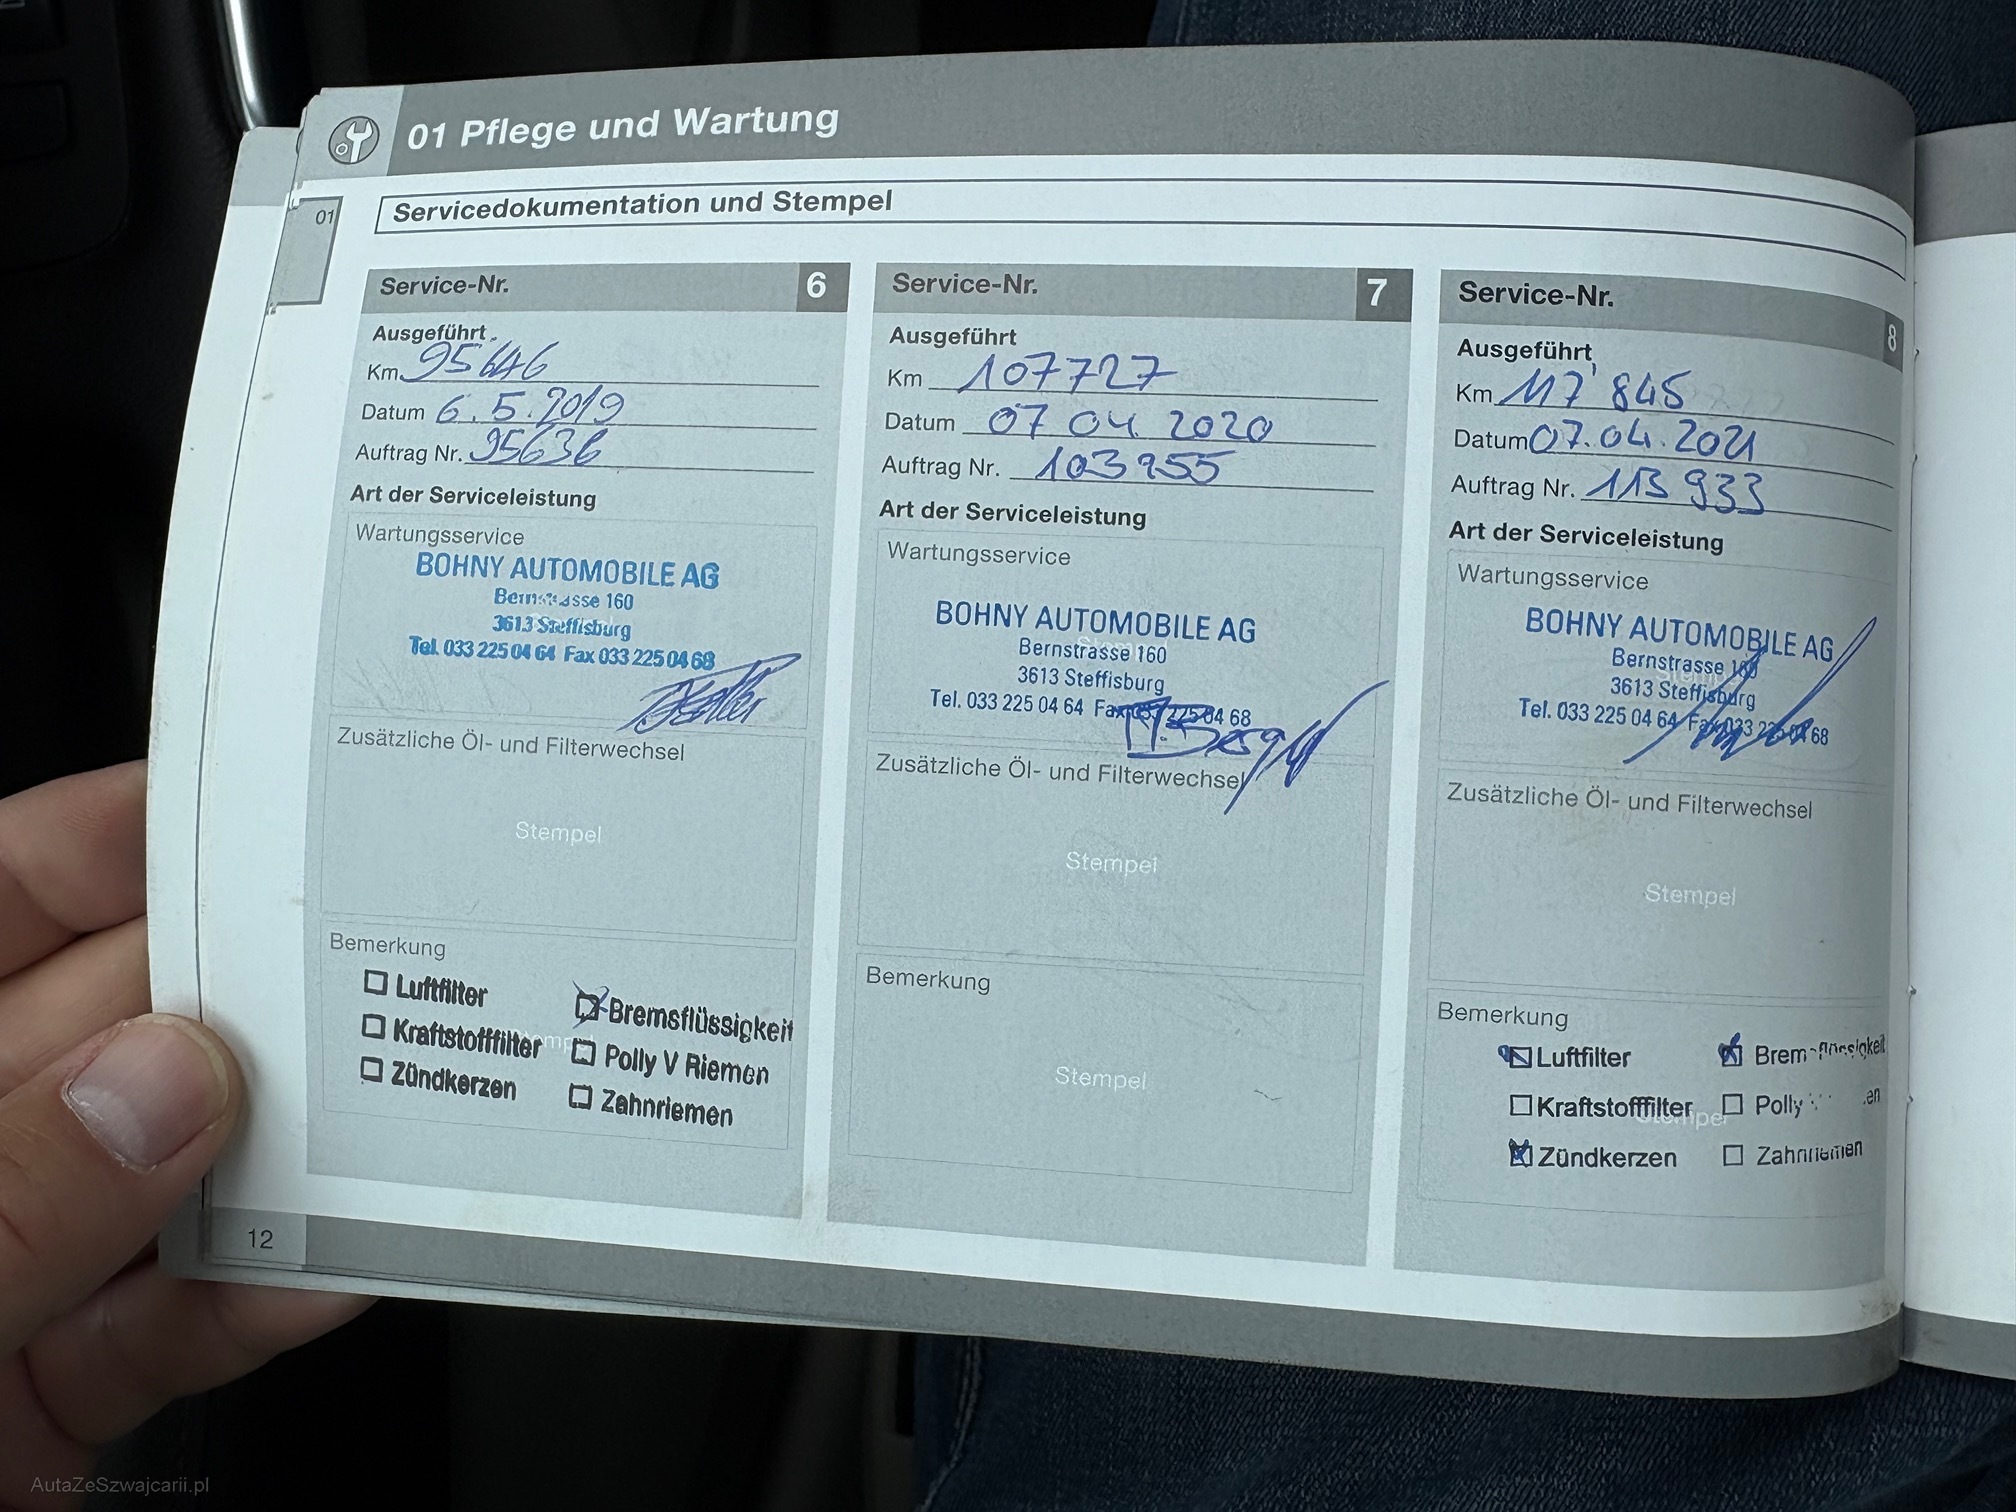 01 Pflege und Wartung
01
Servicedokumentation und Stempel
Service-Nr. 6
Ausgeführt
Km 95646
Datum 6.5.2019
Auftrag Nr. 95636
Art der Serviceleistung
Wartungsservice
BOHNY AUTOMOBILE AG
Bernstrasse 160
3613 Steffisburg
Tel. 033 225 04 64 Fax 033 225 04 68
Zusätzliche Öl- und Filterwechsel
Stempel
Bemerkung
Luftfilter
Bremsflüssigkeit
Kraftstofffilter
Polly V Riemen
Zündkerzen
Zahnriemen
Service-Nr. 7
Ausgeführt
Km 107727
Datum 07 04. 2020
Auftrag Nr. 103955
Art der Serviceleistung
Wartungsservice
BOHNY AUTOMOBILE AG
Bernstrasse 160
3613 Steffisburg
Tel. 033 225 04 64 Fax 033 225 04 68
Zusätzliche Öl- und Filterwechsel
Stempel
Bemerkung
Stempel
Service-Nr. 8
Ausgeführt
Km 117'845
Datum 07.04.2021
Auftrag Nr. 113933
Art der Serviceleistung
Wartungsservice
BOHNY AUTOMOBILE AG
Bernstrasse 160
3613 Steffisburg
Tel. 033 225 04 64 Fax 033 225 04 68
Zusätzliche Öl- und Filterwechsel
Stempel
Bemerkung
Luftfilter
Bremsflüssigkeit
Kraftstofffilter
Polly
Stempel
Zündkerzen
Zahnriemen
12
AutaZeSzwajcarii.pl